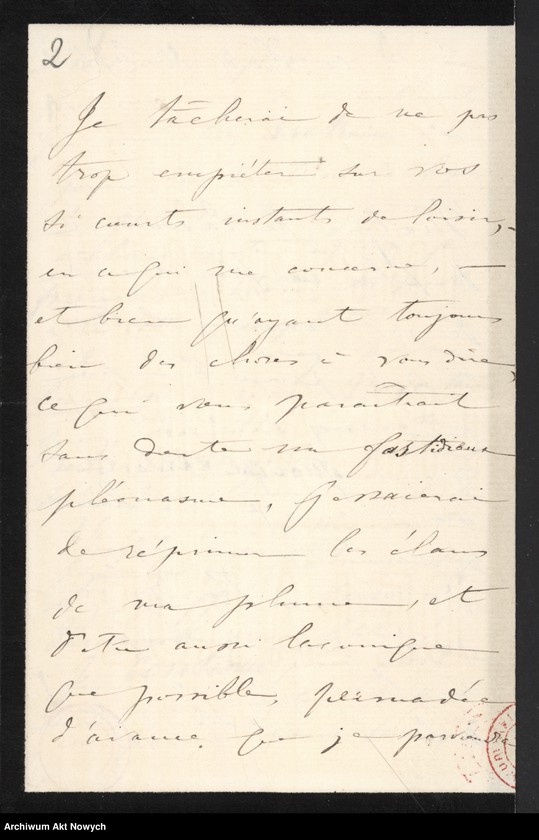 2
Je tâcherai de ne pas
trop empiéter sur vos
si courts instants de loisir, –
en ce qui me concerne, –
et bien qu'ayant toujours
bien des choses à vous dire,
ce qui vous paraîtrait
sans doute un fastidieux
pléonasme, j'essaierai
de réprimer les élans
de ma plume, et
d'être aussi laconique
que possible, persuadée
d'avance que je
Archiwum Akt Nowych